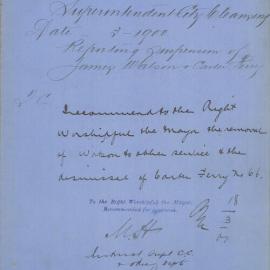 Superintendent City Cleansing
Date 3-1900
Reporting Suspension of
James Watson & Carter Ferry
I recommend to the Right
Worshipful the Mayor the removal
of Watson to other service & the
dismissal of Carter Ferry No 66.
To the Right Worshipful the Mayor.
Recommended for approval.
18
3